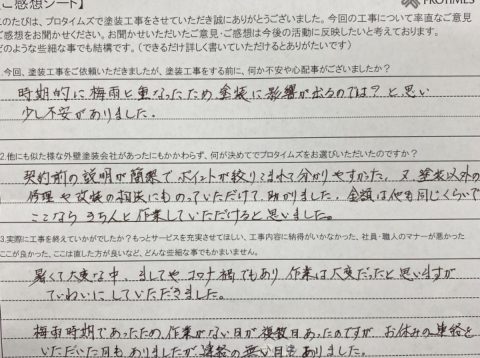 ご感想シート
PROTIMES
このたびは、プロタイムズで塗装工事をさせていただき誠にありがとうございました。今回の工事について率直なご意見
ご感想をお聞かせください。お聞かせいただいたご意見・ご感想は今後の活動に反映したいと考えております。
どのような些細な事でも結構です。(できるだけ詳しく書いていただけるとありがたいです)
1.今回、塗装工事をご依頼いただきましたが、塗装工事をする前に、何か不安や心配事がございましたか?
時期的に梅雨と重なったため塗装に影響が出るのでは?と思い
少し不安がありました.
2.他にも似た様な外壁塗装会社があったにもかかわらず、何が決めてでプロタイムズをお選びいただいたのですか?
契約前の説明が簡素で、ポイントが絞りこまれて分かりやすかった, 又、塗装以外の
修理や改装の相談にものっていただけて、助かりました. 金額は他も同じくらいで
ここなら きちんと作業していただけると思いました。
3.実際に工事を終えていかがでしたか?もっとサービスを充実させてほしい、工事内容に納得がいかなかった、社員・職人のマナーが悪かった
ここが良かった、ここは直した方が良いなど、どんな些細な事でもかまいません。
暑くて大変な中、ましてや、コロナ禍でもあり 作業は大変だったと思いますが
ていねいにしていただきました。
梅雨時期であったため、作業がない日が複数日あったのですが、お休みの連絡を
いただいた日もありましたが連絡の無い日もありました。